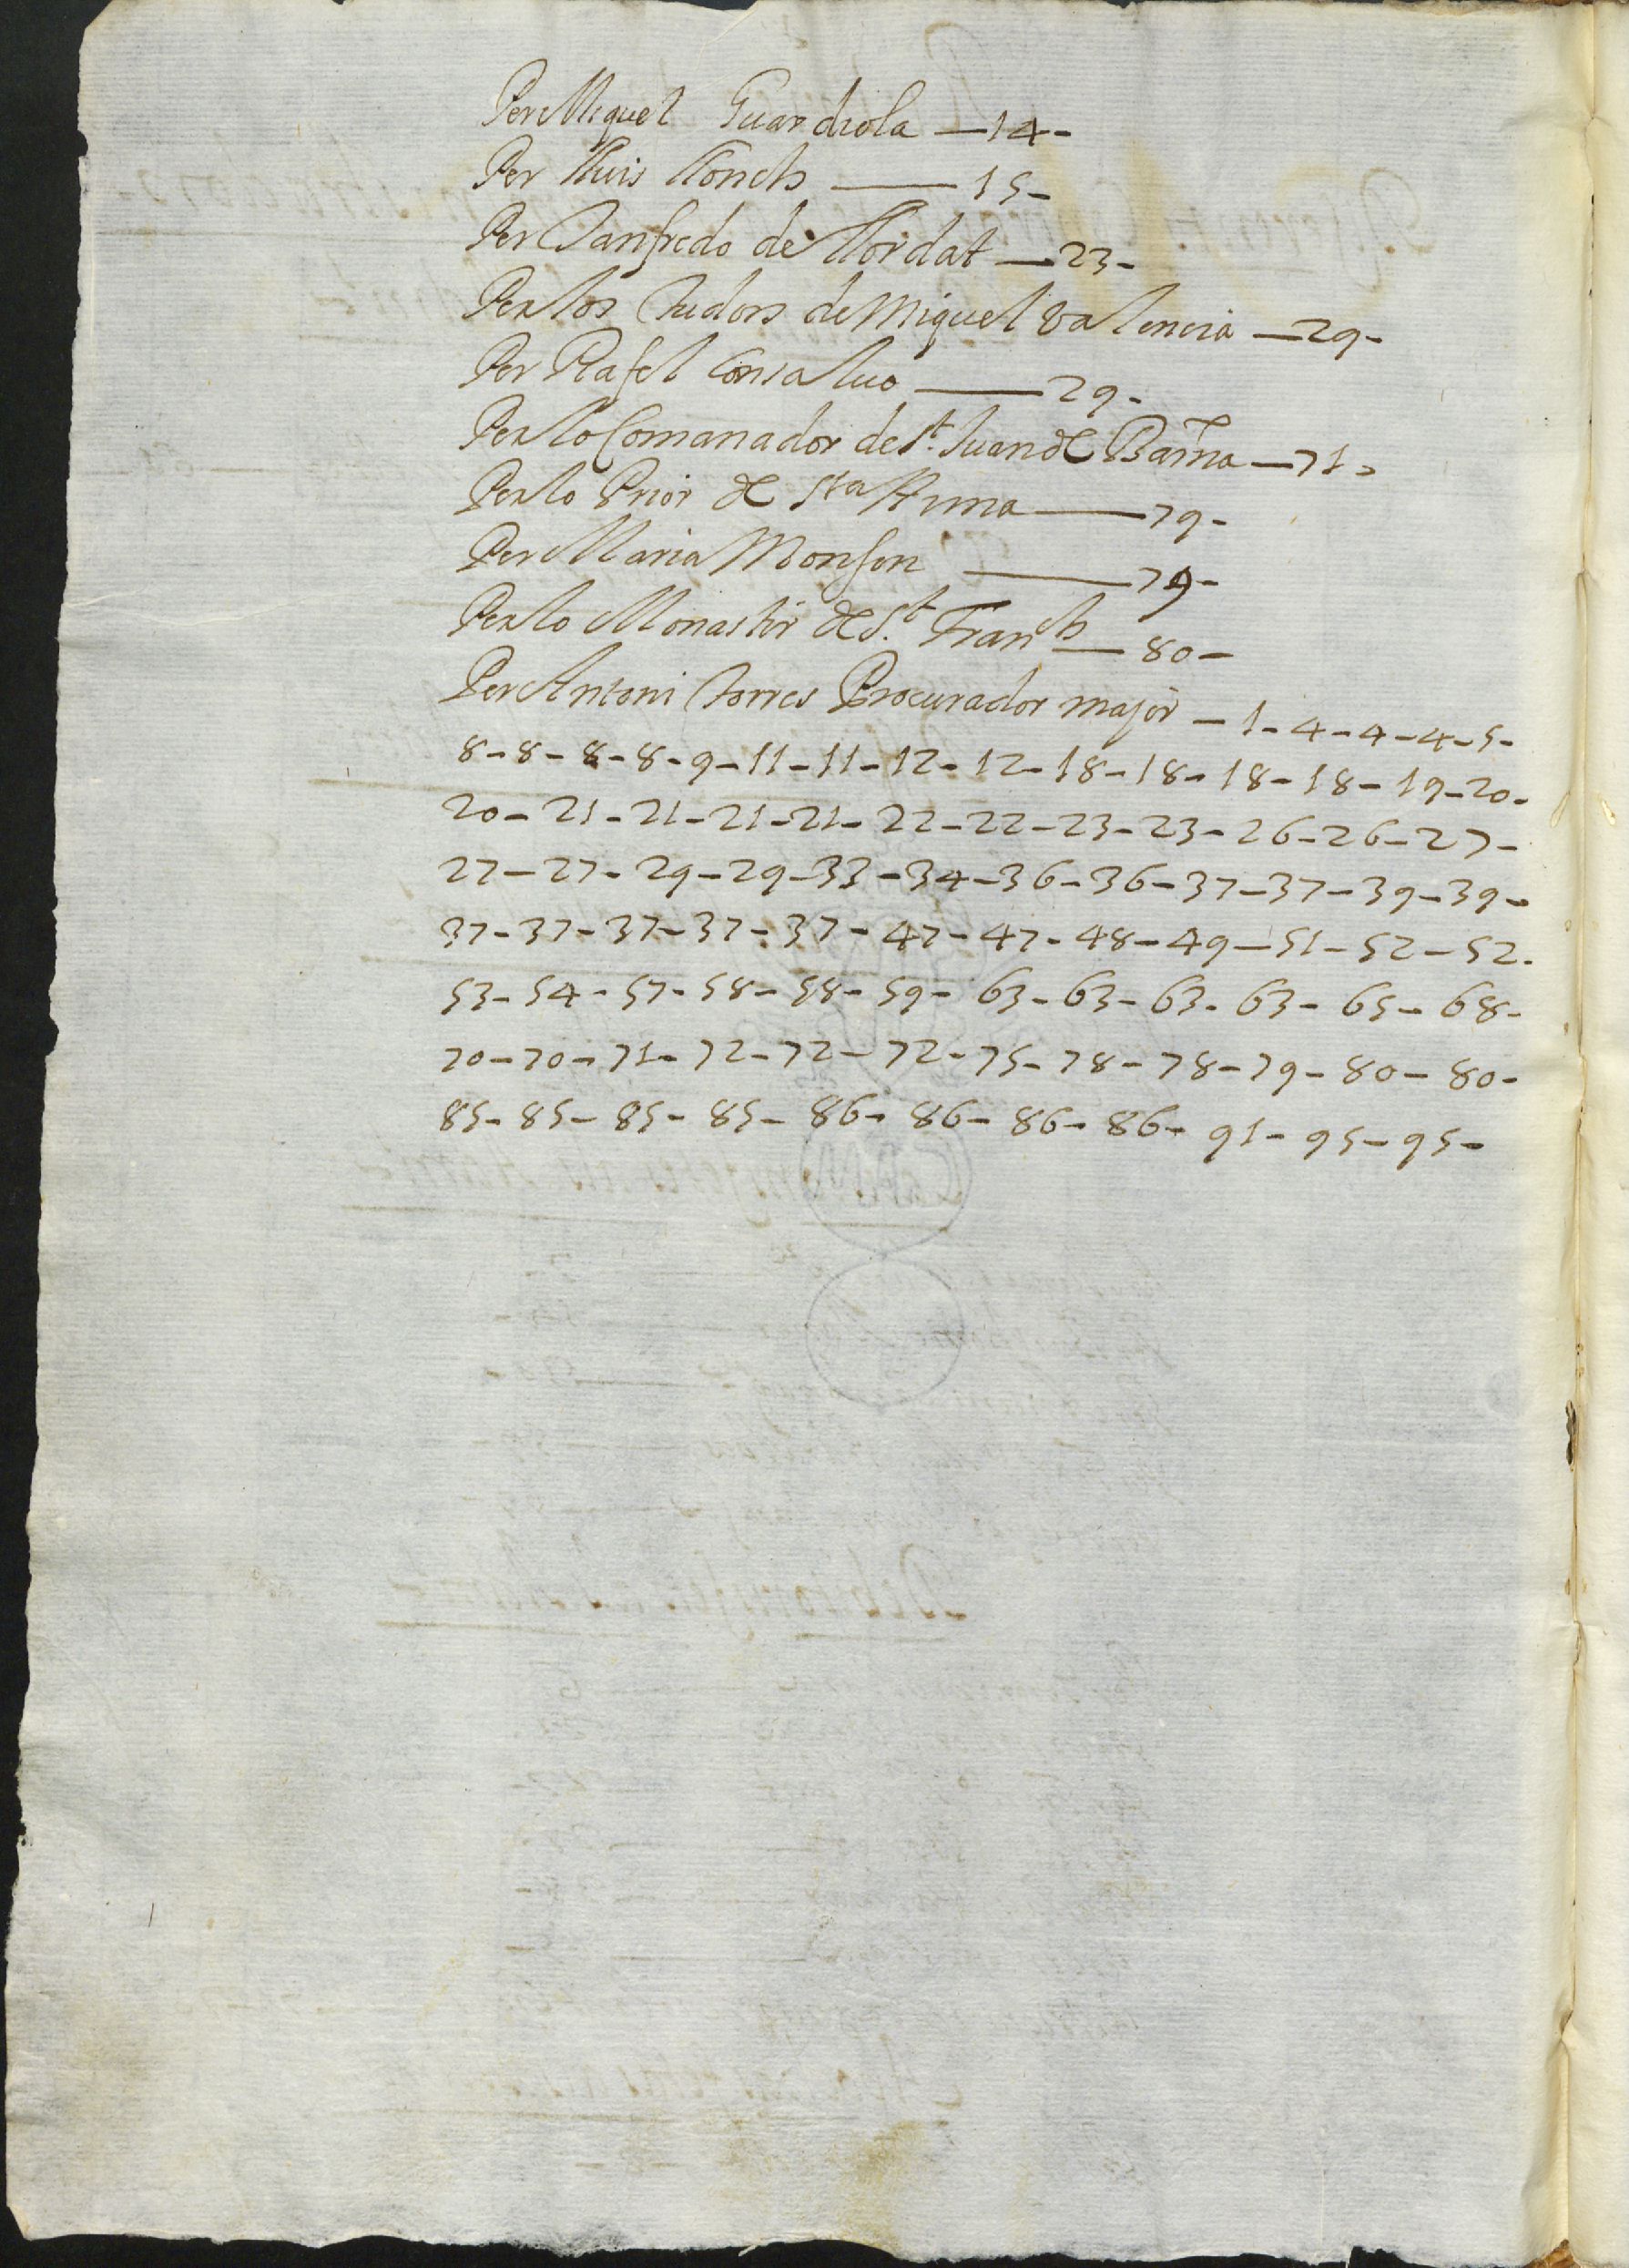 Per Miquel Guardiola — 14 -
Per lluis llonch — 15 -
Per Janfredo de llordat — 23 -
Per los tudors de Miquel Valencia — 29 -
Per Rafel Consaluo — 29 -
Per lo Comanador de St. Juan de Barna — 71 -
Per lo Prior de Sta Anna — 79 -
Per Maria Monson — 79 -
Per lo Monastir de St. Franch — 80 -
Per Antoni torres Procurador major — 1 - 4 - 4 - 4 - 5 -
8 - 8 - 8 - 8 - 9 - 11 - 11 - 12 - 12 - 18 - 18 - 18 - 18 - 19 - 20 -
20 - 21 - 21 - 21 - 21 - 22 - 22 - 23 - 23 - 26 - 26 - 27 -
27 - 27 - 29 - 29 - 33 - 34 - 36 - 36 - 37 - 37 - 39 - 39 -
37 - 37 - 37 - 37 - 37 - 47 - 47 - 48 - 49 - 51 - 52 - 52 -
53 - 54 - 57 - 58 - 58 - 59 - 63 - 63 - 63 - 63 - 65 - 68 -
70 - 70 - 71 - 72 - 72 - 72 - 75 - 78 - 78 - 79 - 80 - 80 -
85 - 85 - 85 - 85 - 86 - 86 - 86 - 86 - 91 - 95 - 95 -